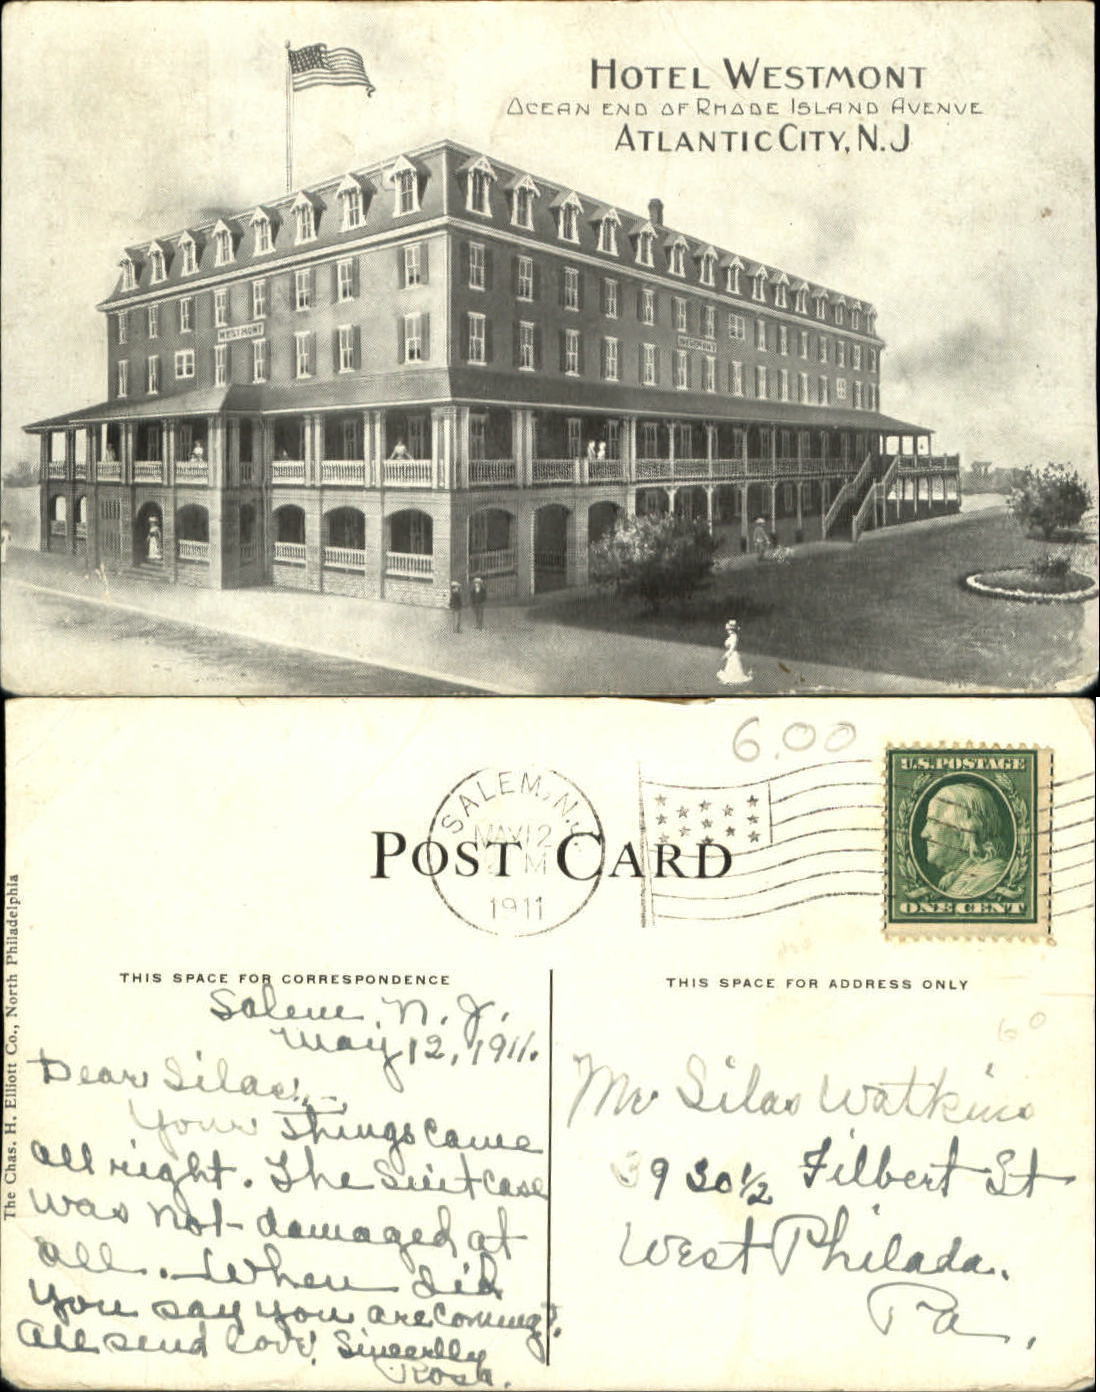 HOTEL WESTMONT
OCEAN END OF RHODE ISLAND AVENUE
ATLANTIC CITY, N.J
WESTMONT
WESTMONT
6.00
U.S. POSTAGE
ONE CENT
SALEM, N.J.
MAY 12
M
1911
POST CARD
The Chas. H. Elliott Co., North Philadelphia
THIS SPACE FOR CORRESPONDENCE
Salem, N. J.
May 12, 1911.
Dear Silas:—
Your Things Came
all right. The Suit case
was not damaged at
all. — When did
you say you are coming?
All send love. Sincerelly
Rosa.
THIS SPACE FOR ADDRESS ONLY
60
Mr Silas Watkins
3930½ Filbert St
West Philada.
Pa.